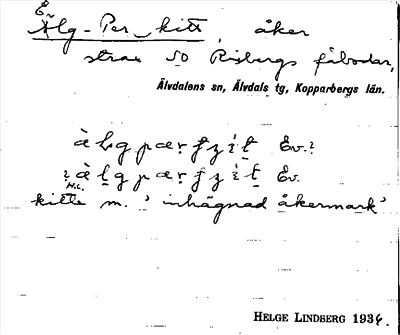 E
Älg-Per-kitt, åker
strax SO Risbergs fäbodar,
Älvdalens sn, Älvdals tg, Kopparbergs län.
Ev.?
Ev.
H.L.
kitte m. 'inhägnad åkermark'
HELGE LINDBERG 1934.